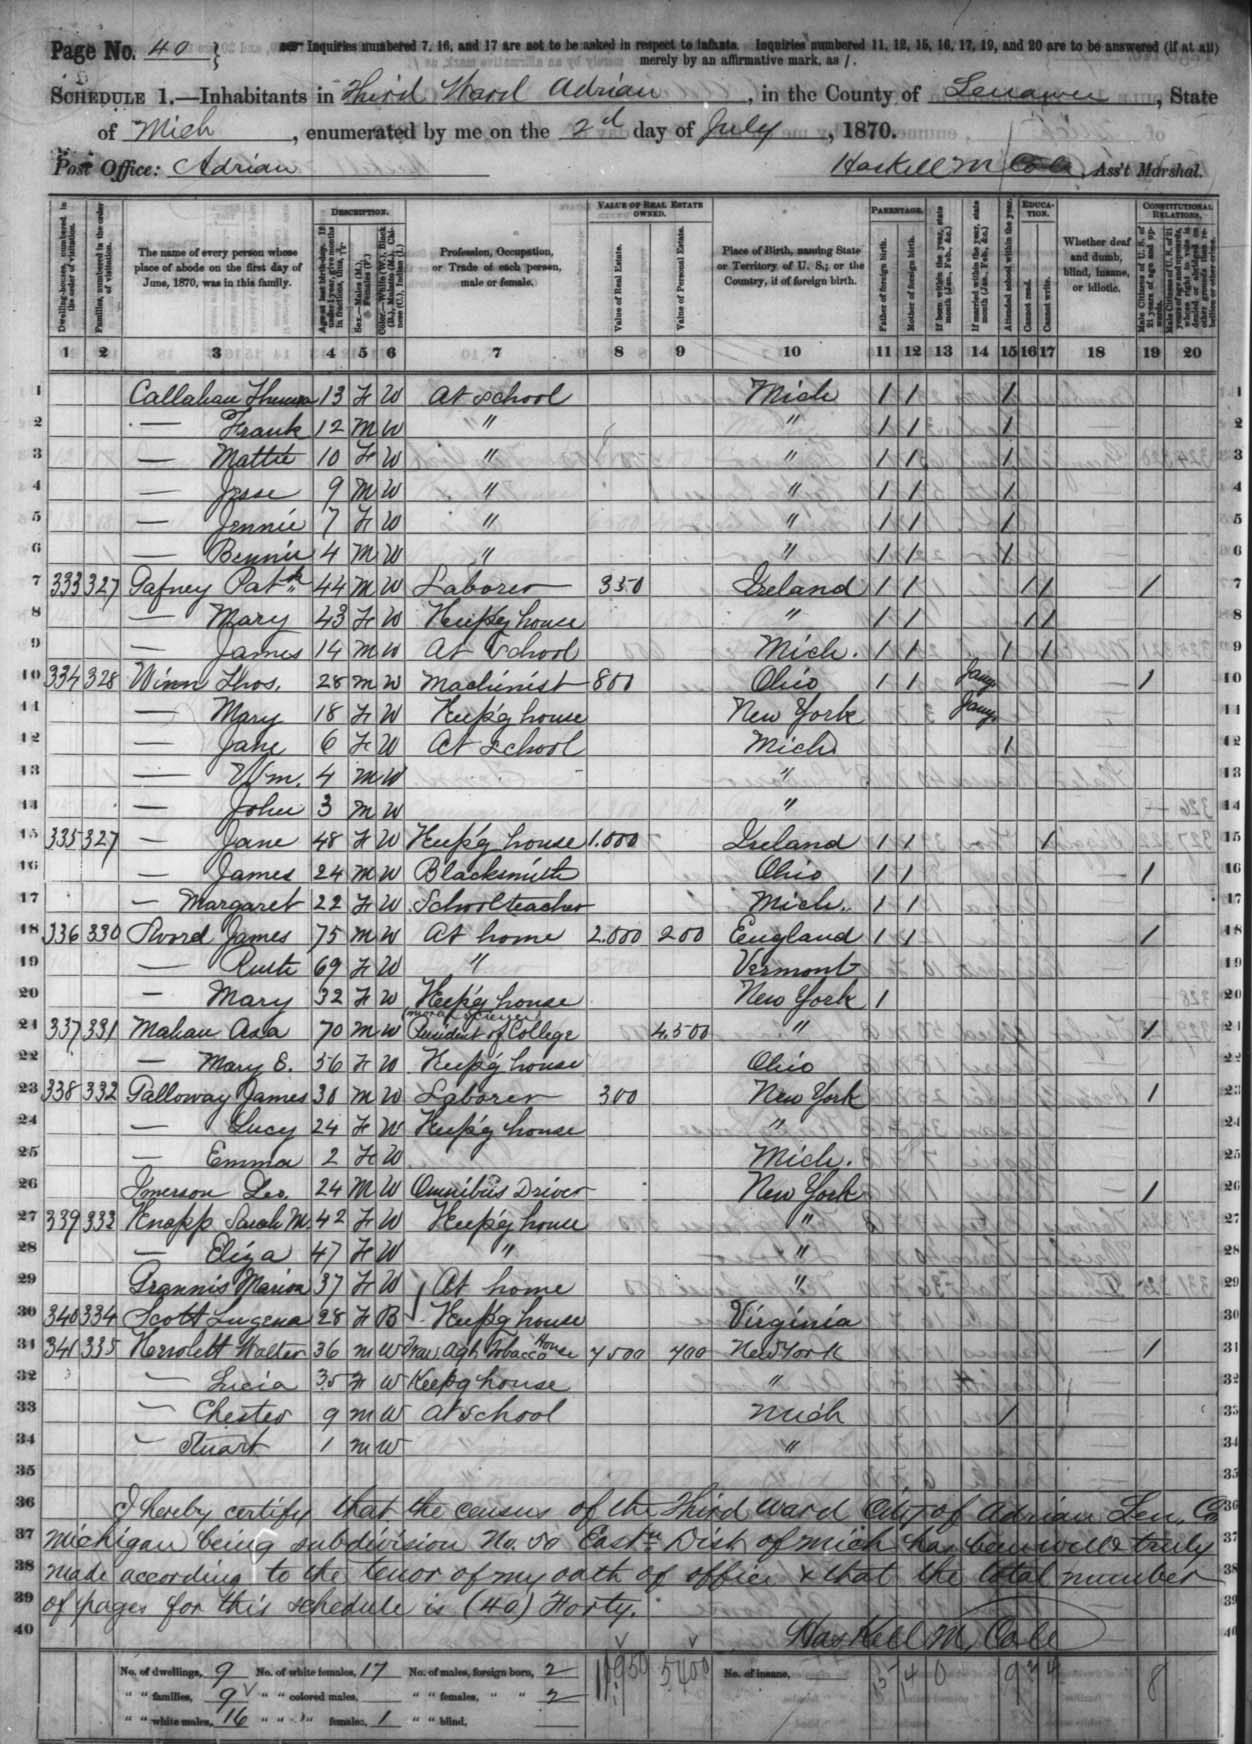 Page No. 40 } Inquiries numbered 7, 16, and 17 are not to be asked in respect to infants. Inquiries numbered 11, 12, 15, 16, 17, 19, and 20 are to be answered (if at all)
merely by an affirmative mark, as /.
SCHEDULE 1.—Inhabitants in Third Ward Adrian, in the County of Lenawee, State
of Mich, enumerated by me on the 2d day of July, 1870.
Post Office: Adrian Haskell M Cole, Ass't Marshal.
Dwelling-houses, numbered in the order of visitation.
Families, numbered in the order of visitation.
The name of every person whose place of abode on the first day of June, 1870, was in this family.
DESCRIPTION.
Age at last birth-day. If under 1 year, give months in fractions, thus, 3/12
Sex.—Males (M.), Females (F.)
Color.—White (W.), Black (B.), Mulatto (M.), Chinese (C.), Indian (I.)
Profession, Occupation, or Trade of each person, male or female.
VALUE OF REAL ESTATE OWNED.
Value of Real Estate.
Value of Personal Estate.
Place of Birth, naming State or Territory of U. S.; or the Country, if of foreign birth.
PARENTAGE.
Father of foreign birth.
Mother of foreign birth.
If born within the year, state month (Jan., Feb., &c.)
If married within the year, state month (Jan., Feb., &c.)
Attended school within the year.
EDUCATION.
Cannot read.
Cannot write.
Whether deaf and dumb, blind, insane, or idiotic.
CONSTITUTIONAL RELATIONS.
Male Citizens of U. S. of 21 years of age and upwards.
1 2 3 4 5 6 7 8 9 10 11 12 13 14 15 16 17 18 19 20
1 Callahan 13 F W At school Mich / / / 1
2 — Frank 12 M W " " / / / 2
3 — Mattie 10 F W " " / / / 3
4 — Jesse 9 M W " " / / / 4
5 — Jennie 7 F W " " / / / 5
6 — Bennie 4 M W " " / / / 6
7 333 327 Gafney Patk 44 M W Laborer 350 Ireland / / / / / 7
8 — Mary 43 F W Keep'g house " / / / / 8
9 — James 14 M W At School Mich. / / / / 9
10 334 328 Winn Thos. 28 M W Machinist 800 Ohio / / Jany / 10
11 — Mary 18 F W Keep'g house New York Jany 11
12 — Jane 6 F W At school Mich / 12
13 — Wm. 4 M W " 13
14 — John 3 M W " 14
15 335 327 — Jane 48 F W Keep'g house 1.000 Ireland / / / 15
16 — James 24 M W Blacksmith Ohio / / / 16
17 — Margaret 22 F W Schoolteacher Mich. / / 17
18 336 330 Sword James 75 M W At home 2.000 200 England / / / 18
19 — Ruth 69 F W " Vermont 19
20 — Mary 32 F W Keep'g house New York / 20
21 337 331 Mahan Asa 70 M W (moral science) President of College 4.500 " / 21
22 — Mary E. 56 F W Keep'g house Ohio 22
23 338 332 Galloway James 30 M W Laborer 300 New York / 23
24 — Lucy 24 F W Keep'g house " 24
25 — Emma 2 F W Mich. 25
26 Imerson Geo. 24 M W Omnibus Driver New York / 26
27 339 333 Knapp Sarah M. 42 F W Keep'g house " 27
28 — Eliza 47 F W " " 28
29 Grannis Maria 37 F W At home " 29
30 340 334 Scott Lugena 28 F B Keep'g house Virginia 30
31 341 335 Walter 36 M W Trav Agt Tobacco House 7500 700 New York / 31
32 — Lucia 35 F W Keepg house " 32
33 — Chester 9 M W At school Mich / 33
34 — Stuart 1 M W " 34
35 35
36 I hereby certify that the census of the Third Ward City of Adrian Len. Co 36
37 Michigan being subdivision No. 50 Eastn Dist of Mich has been well & truly 37
38 made according to the tenor of my oath of office & that the total number 38
39 of pages for this schedule is (40) Forty. 39
40 Haskell M Cole 40
No. of dwellings, 9 No. of white females, 17 No. of males, foreign born, 2 11950 5400 No. of insane, 9 3 4 8
" " families, 9 " " colored males, " " females, " " 2
" " white males, 16 " " " females, 1 " " blind,